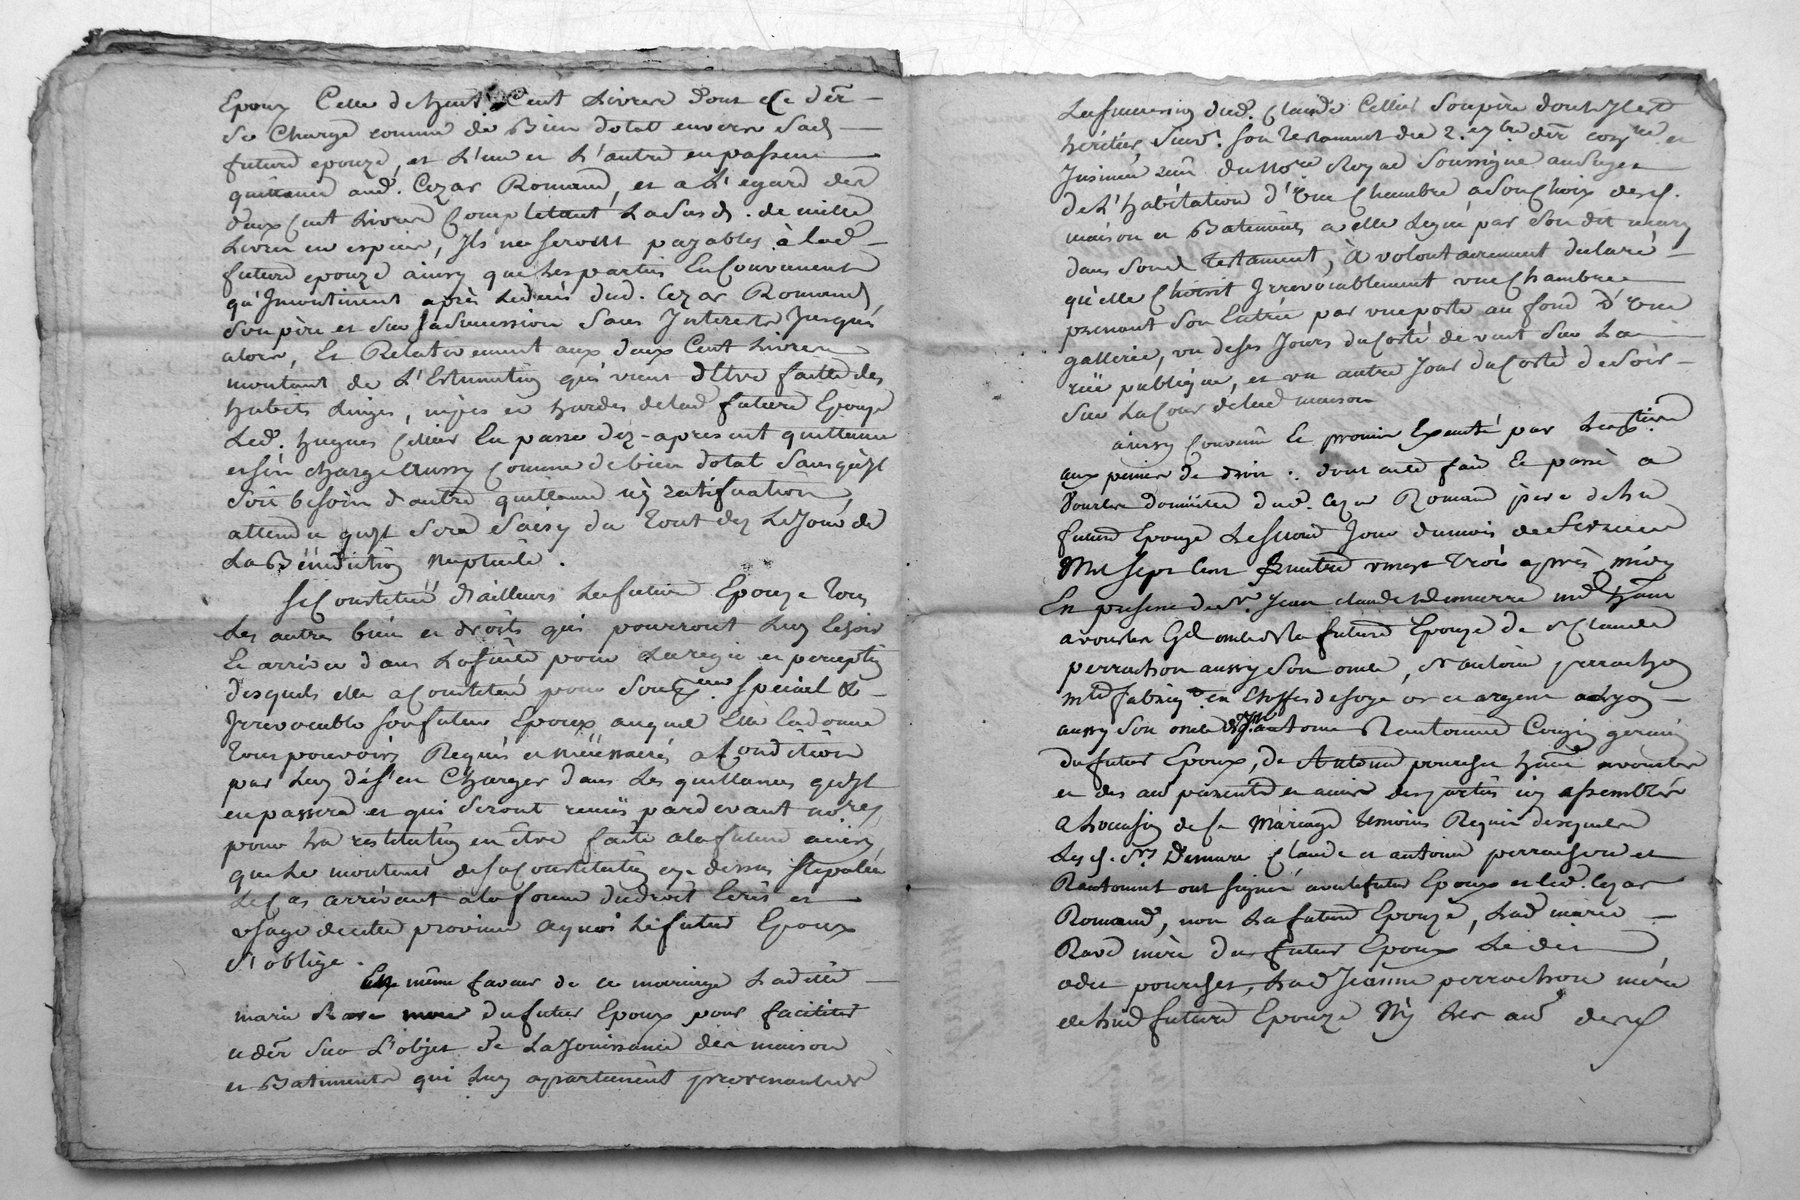 Epoux Celle de huit Cent Livres dont ce der
se Charge comme de Bien dotal envers sad
future epouze, et L'un et L'autre en passent
quittance aud. Cezar Romand, et a L'egard des
deux Cent Livres Completant La susd. de mille
Livres en espèces, Ils ne seront payables à lad
future epouze ainsy que Les parties En Conviennent
qu'Incontinent après Le decès dud. Cezar Romand,
son père et sur sa succession sans Interests Jusqu'
alors, Et Relativement aux deux Cent Livres
montant de L'Estimation qui vient d'Etre faitte des
habits Linges, nipes et hardes de lad future Epouze
Led. hugues Cellier En passe dez-apresent quittance
et s'en charge aussy Comme de bien dotal sans qu'Il
soit besoin d'autre quittance ny ratification,
attendu qu'Il sera saisy du Tout dez Le Jour de
La Bénédiction Nuptiale.
Se Constitue d'ailleurs La future Epouze Tous
Les autres biens et droits qui pourront Luy Echoir
Et arriver dans La suite pour La regie et perception
desquels elle a Constitué pour son special &
Irrevocable son futur Epoux auquel Elle En donne
Tous pouvoirs Requis et nécessaires a Condition
par Luy de s'en Charger dans Les quittances qu'Il
en passera et qui seront reçües pardevant no.res
pour La restitution en être faite a la future ainsy
que Le montant de sa Constitution cy dessus Stipulée
Le Cas arrivant a la forme du droit Ecrit et
usage de cette province a quoi Le futur Epoux
s'oblige.
En même faveur de ce mariage Laditte
marie Rave mere du futur Epoux pour faciliter
ce der sur L'objet de La Jouissance des maison
et Batiments qui Luy apartienent provenants de
La succession dud. Claude Cellier son père dont Il est
héritier suiv. son Testament du 2. 7bre der et
Insinué du No.re Royal Soussigné au sujet
de L'habitation d'Une Chambre a son Choix desd.
maison et Batiments a elle Legué par son dit mary
dans son Testament, à volontairement declaré
qu'elle Choisit Irrevocablement une Chambre
prenant son Entrée par une porte au fond d'Une
gallerie, un de ses Jours du Costé de vent sur La
rüe publique, et un autre Jour du Costé de soir
sur La Cour de lad maison
ainsy Convenu Et promis Executé par Les
aux peines de droit: dont acte fait Et passé a
Bourlon domicile dud. Cezar Romand père de La
future Epouze Le second Jour du mois de fevrier
Mil sept Cent Quatre vingt Trois après midy
En presence de Sr. Jean Claude Demurre md
a oncle de La future Epouze de Sr Claude
perrachon aussy son oncle, Sr antoine perrachon
md fabriq. en Etoffes de soye or et argent a Lyon
aussy son oncle antoine Rantonnet Cousin germain
du futur Epoux, de Antoine
et des au parents et amis des parties icy assemblés
a L'occasion de ce Mariage temoins Requis desquels
Les d. Srs Demure Claude et antoine perrachon et
Rantonnet ont signé avec Le futur Epoux et Led. Cezar
Romand, non La future Epouze, Lad marie
Rave mère du futur Epoux Ledit
, Lad Jeanne perrachon mère
de Lad future Epouze Ny Les au